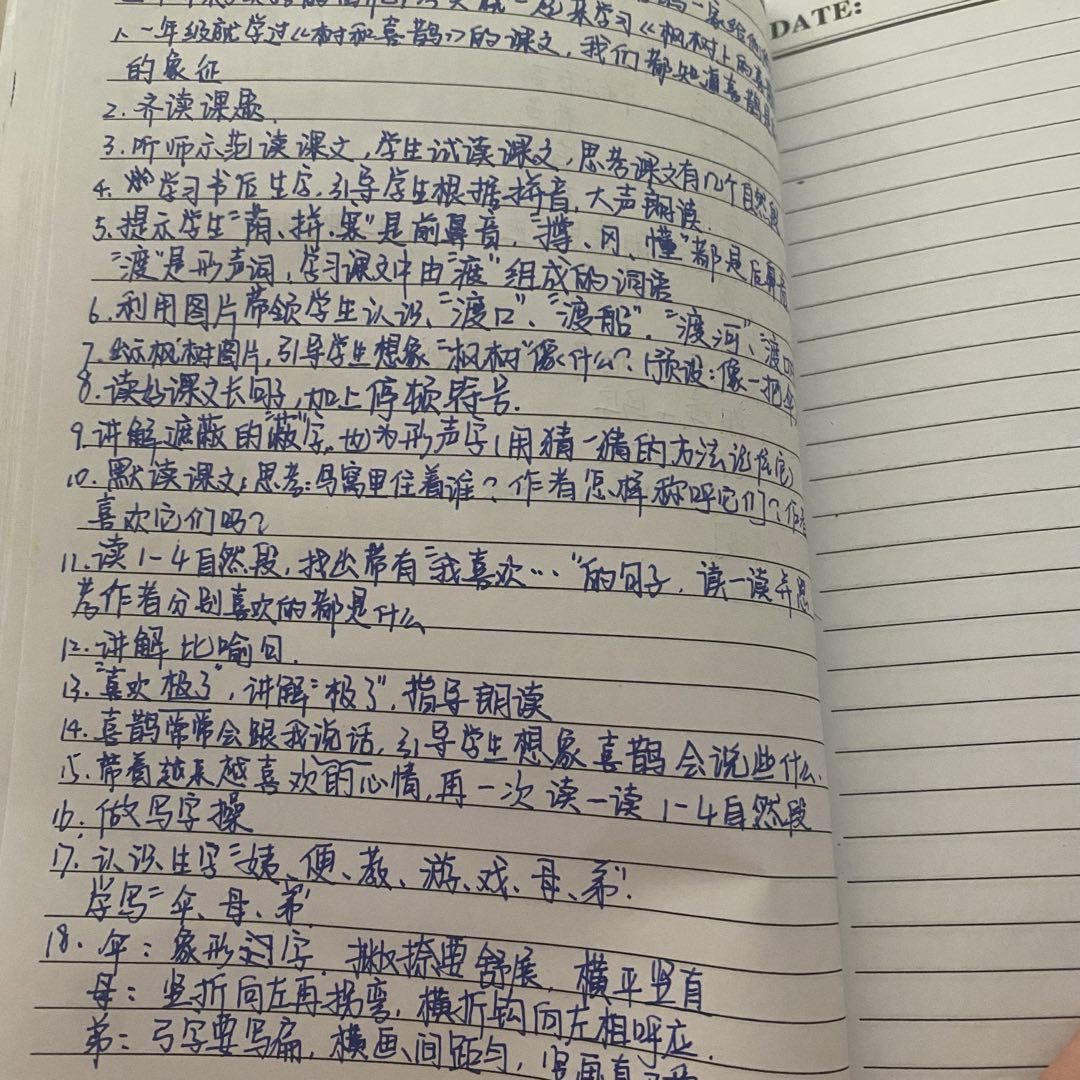 DATE:
一起来学习《枫树上的喜
1. 一年级就学过《树和喜鹊》的课文,我们都知道喜鹊是
的象征
2. 齐读课题.
3. 听师示范读课文,学生试读课文,思考课文有几个自然段
4. 学习书后生字,引导学生根据拼音,大声朗读.
5. 提示学生"荫、拼、寨"是前鼻音,"撑、冈、懂"都是后鼻音
"渡"是形声词,学习课文中由"渡"组成的词语
6. 利用图片带领学生认识、"渡口"、"渡船"、"渡河"、"渡
7. 出示枫树图片,引导学生想象"枫树"像什么?(预设:像一把伞
8. 读好课文长句子,加上停顿符号.
9. 讲解遮蔽的"蔽"字,也为形声字(用猜一猜的方法记住它)
10. 默读课文,思考:鸟窝里住着谁?作者怎样称呼它们?作者
喜欢它们吗?
11. 读1-4自然段,找出带有"我喜欢…"的句子,读一读并思
考作者分别喜欢的都是什么
12. 讲解比喻句.
13. "喜欢极了",讲解"极了",指导朗读
14. 喜鹊常常会跟我说话,引导学生想象喜鹊会说些什么.
15. 带着越来越喜欢的心情,再一次读一读1-4自然段
16. 做写字操
17. 认识生字"姨、便、教、游、戏、母、弟".
学写"伞、母、弟"
18. 伞:象形字,撇捺要舒展,横平竖直
母:竖折向左再拐弯,横折钩向左相呼应.
弟:弓字要写扁,横画间距匀,